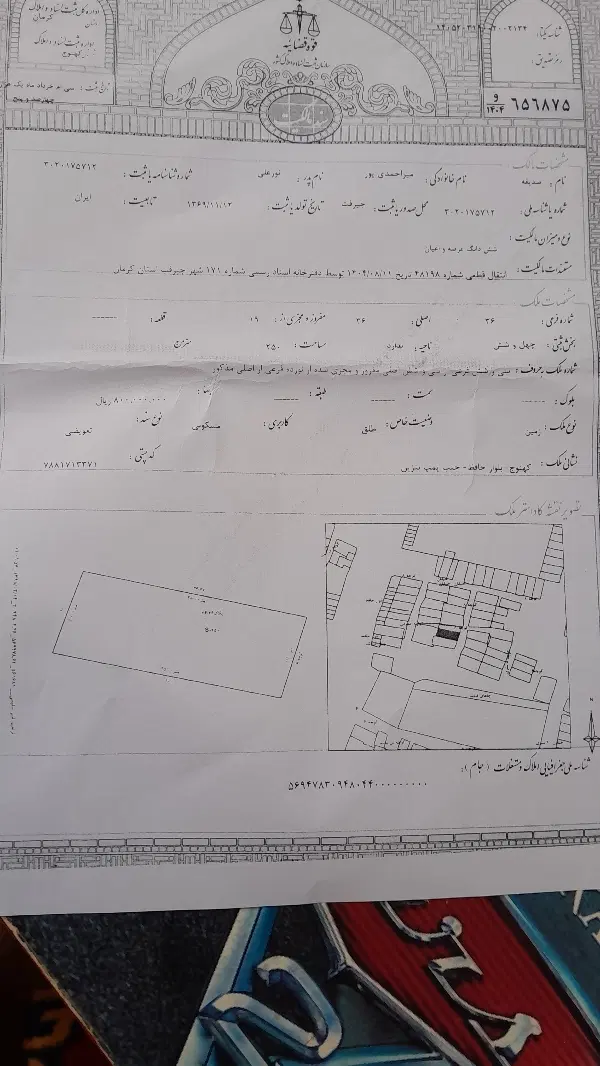 اداره کل ثبت اسناد و املاک
استان کرمان
اداره ثبت اسناد و املاک
کهنوج
قوه قضاییه
سازمان ثبت اسناد و املاک کشور
شناسه یکتا :
رمز تصدیق :
تاریخ ثبت : سی ام خرداد ماه یک
سند مالکیت
و ۱۴۰۴ ۶۵۶۸۷۵
مشخصات مالک
نام : صدیقه نام خانوادگی : میراحمدی پور نام پدر : نورعلی شماره شناسنامه یا ثبت : ۳۰۲۰۱۷۵۷۱۲
شماره یا شناسه ملی : ۳۰۲۰۱۷۵۷۱۲ محل صدور یا ثبت : جیرفت تاریخ تولد یا ثبت : ۱۳۶۹/۱۱/۱۲ تابعیت : ایران
نوع و میزان مالکیت : شش دانگ عرصه و اعیان
مستندات مالکیت : انتقال قطعی شماره ۴۸۱۹۸ تاریخ ۱۴۰۴/۰۸/۱۱ توسط دفترخانه اسناد رسمی شماره ۱۷۱ شهر جیرفت استان کرمان
مشخصات ملک
شماره فرعی : ۳۶ اصلی : ۳۶ مفروز و مجزی از : ۱۹ قطعه :
بخش ثبتی : چهل و شش ناحیه : ندارد مساحت : ۲۵۰ مترمربع
شماره ملک به حروف : سی و شش فرعی از سی و شش اصلی مفروز و مجزی شده از نوزده فرعی از اصلی مذکور
بلوک : سمت : طبقه : بها : ۸۰۰,۰۰۰,۰۰۰ ریال
نوع ملک : زمین وضعیت خاص : طلق کاربری : مسکونی نوع سند : تعویضی
نشانی ملک : کهنوج- بلوار حافظ- جنب پمپ بنزین کد پستی : ۷۸۸۱۷۱۳۳۷۱
تصویر نقشه کاداستر ملک
شناسه ملی جغرافیایی املاک و مستغلات ( جام ) :
۵۶۹۴۷۸۳۰۹۴۸۰۴۴۰۰۰۰۰۰۰۰۰